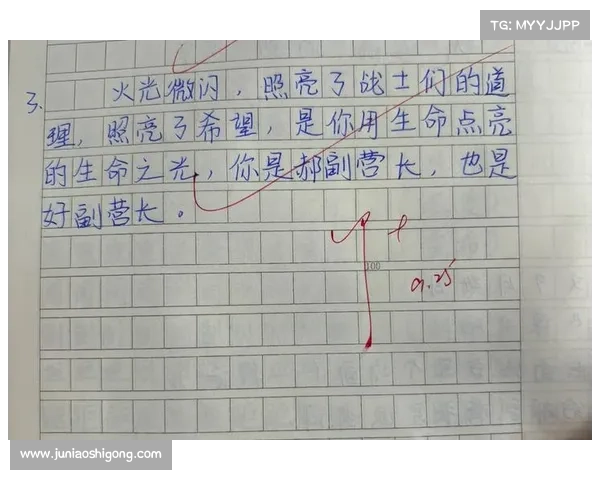 TG: MYYJJPP
3. 火光微闪，照亮了战士们的道
理，照亮了希望，是你用生命点亮
的生命之光，你是郝副营长，也是
好副营长。
100
9.25
www.juniaoshigong.com